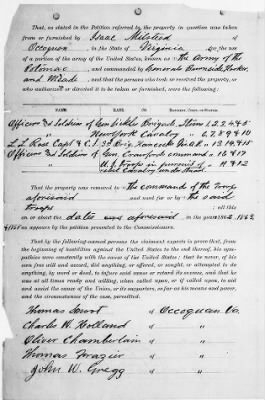 That, as stated in the Petition referred by the property in question was taken
from or furnished by Isaac Milstead of
Occoquan, in the State of Virginia for the use
of a portion of the army of the United States, known as The Army of the
Potomac and commanded by Generals Burnside, Hooker,
and Meade, and that the persons who took or received the property, or
who authorized or directed it to be taken or furnished, were the following:
NAME
Officers and Soldiers of Gen Sickles Brigade, Items 1, 2, 3, 4 & 5
" " New York Cavalry " 6, 7, 8, 9 & 10
L. L. Rose Capt & C.S. 3d Brig. Hancocks 13, 14 & 15
Officers and Soldiers of Gen Crawfords command " 16 & 17
" " U.S. Troops in pursuit of " 11 & 12
rebel Cavalry under
That the property was removed to the command of the troops
aforesaid and used for or by the said
troops ; all this
on or about the dates as aforesaid, in the years 1862, 1863
as appears in the petition presented to the said Court.
That by the following-named persons the claimant expects to prove that, from the
beginning of hostilities against the United States to the end thereof, his sym-
pathies were constantly with the cause of the United States; that he never, of his
own free will and accord, did anything, or offered, or sought, or attempted to do
anything, by word or deed, to injure said cause or retard its success, and that he
was at all times ready and willing, when called upon, or if called upon, to aid
and assist the cause of the Union, or its supporters, so far as his means and power,
and the circumstances of the case, permitted.
Thomas of Occoquan Va.
Charles W. Holland of "
Oliver Chamberlain of "
Thomas Frazier of "
John W. Gregg of "